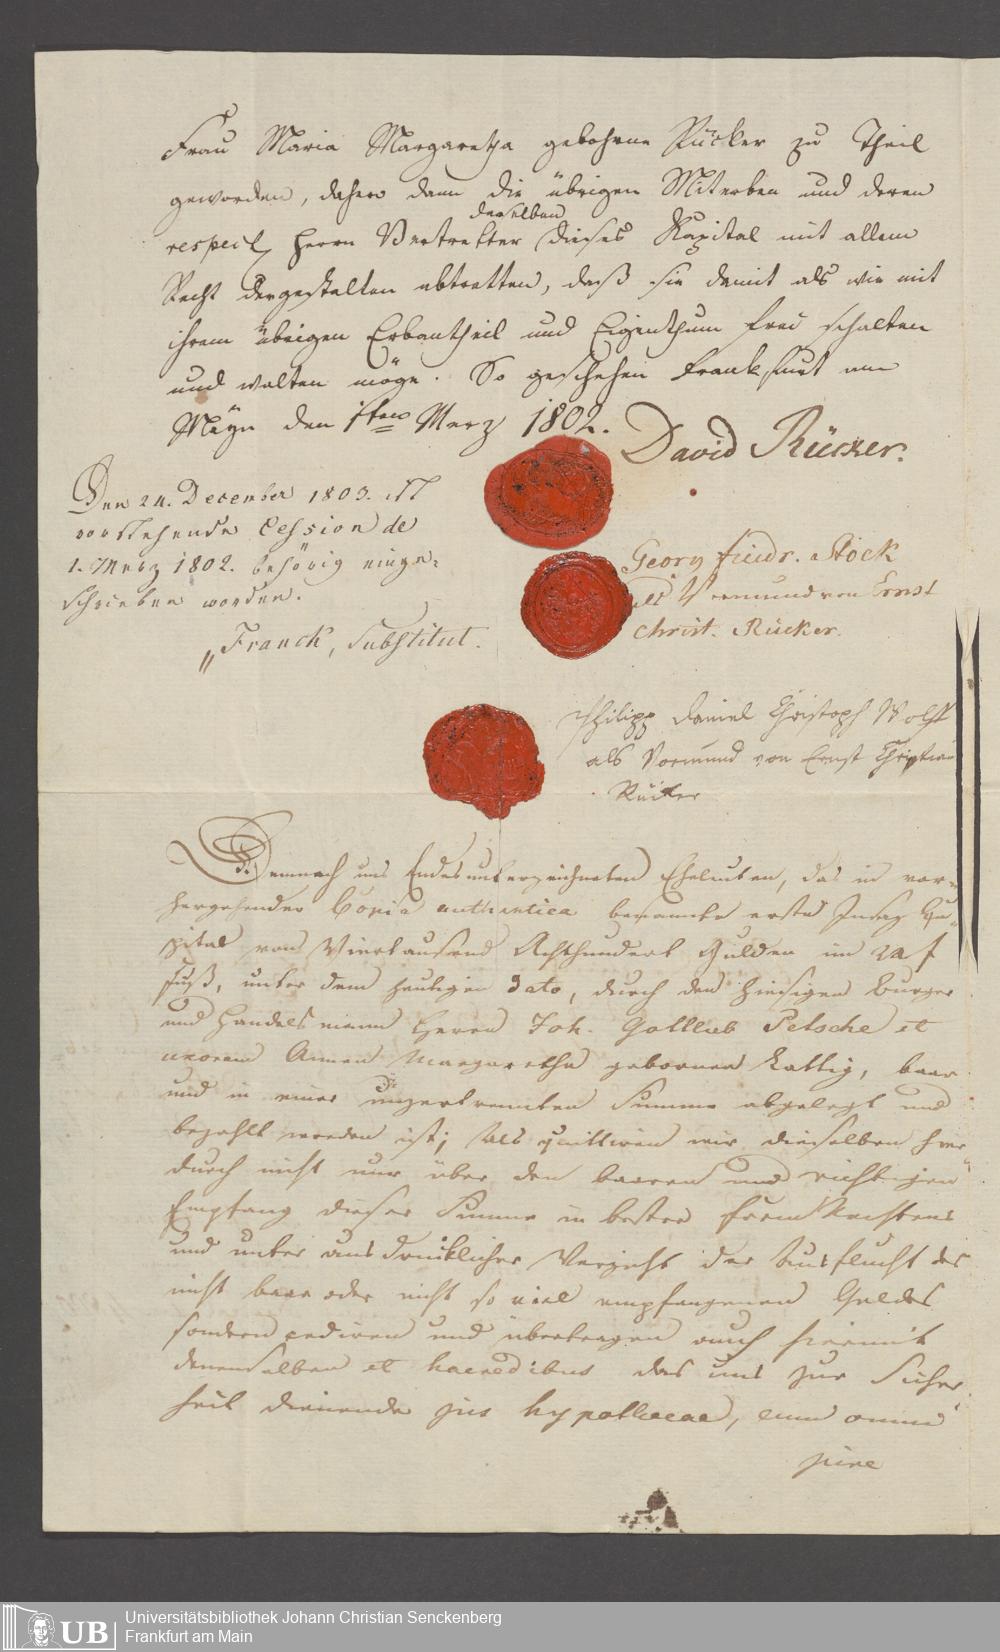 Frau Maria Margaretha gebohrne Rücker zu Theil
geworden, daher dann die übrigen Miterben und deren
respect. Herrn Vertretter derselben dieses Kapital mit allem
Recht dergestalten abtretten, daß sie damit als wie mit
ihrem übrigen Erbantheil und Eigenthum frei schalten
und walten möge. So geschehen Frankfurt am
Mayn den 1ten Merz 1802.
David Rücker.
Den 24. December 1803. ist
vorstehende Cession de
1. Merz 1802. behörig einge-
schrieben worden.
Franck, Substitut.
Georg Friedr. Stock
als Vormund von Ernst
Christ. Rücker.
Philipp Daniel Christoph Wolff
als Vormund von Ernst Christian
Rücker
Demnach uns Endesunterzeichneten Eheleuten, das in vor-
hergehender Copia authentica benannte erste Insaz Ka-
pital von Viertausend Achthundert Gulden im 24 f
fuß, unter dem heutigen Dato, durch den hiesigen Burger
und Handelsmann Herrn Joh. Gottlieb Petsche et
uxorem Annen Margaretha geborner Kattig, baar
und in einer unzertrennten Summe abgelegt und
bezahlt worden ist; Als quittiren wir dieselben hier-
durch nicht nur über den baaren und richtigen
Empfang dieser Summe in bester Form Rechtens
und unter ausdrücklicher Verzicht der Ausflucht des
nicht baar oder nicht so viel empfangenen Geldes
sondern cediren und übertragen auch hiermit
denenselben et haeredibus das uns zur Sicher-
heit dienende jus hypothecae, cum omni
jure
Universitätsbibliothek Johann Christian Senckenberg
Frankfurt am Main
UB